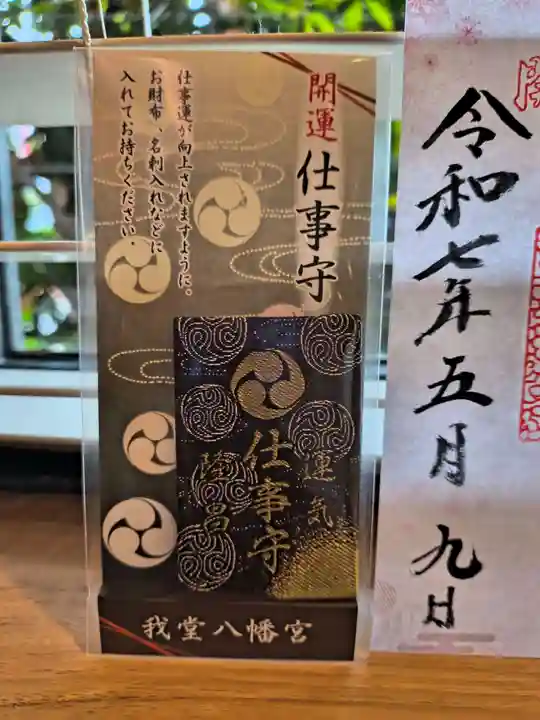 開運 仕事守
仕事運が向上されますように、
お財布、名刺入れなどに
入れてお持ちください。
運気
仕事守
隆昌
我堂八幡宮
令和七年五月九日